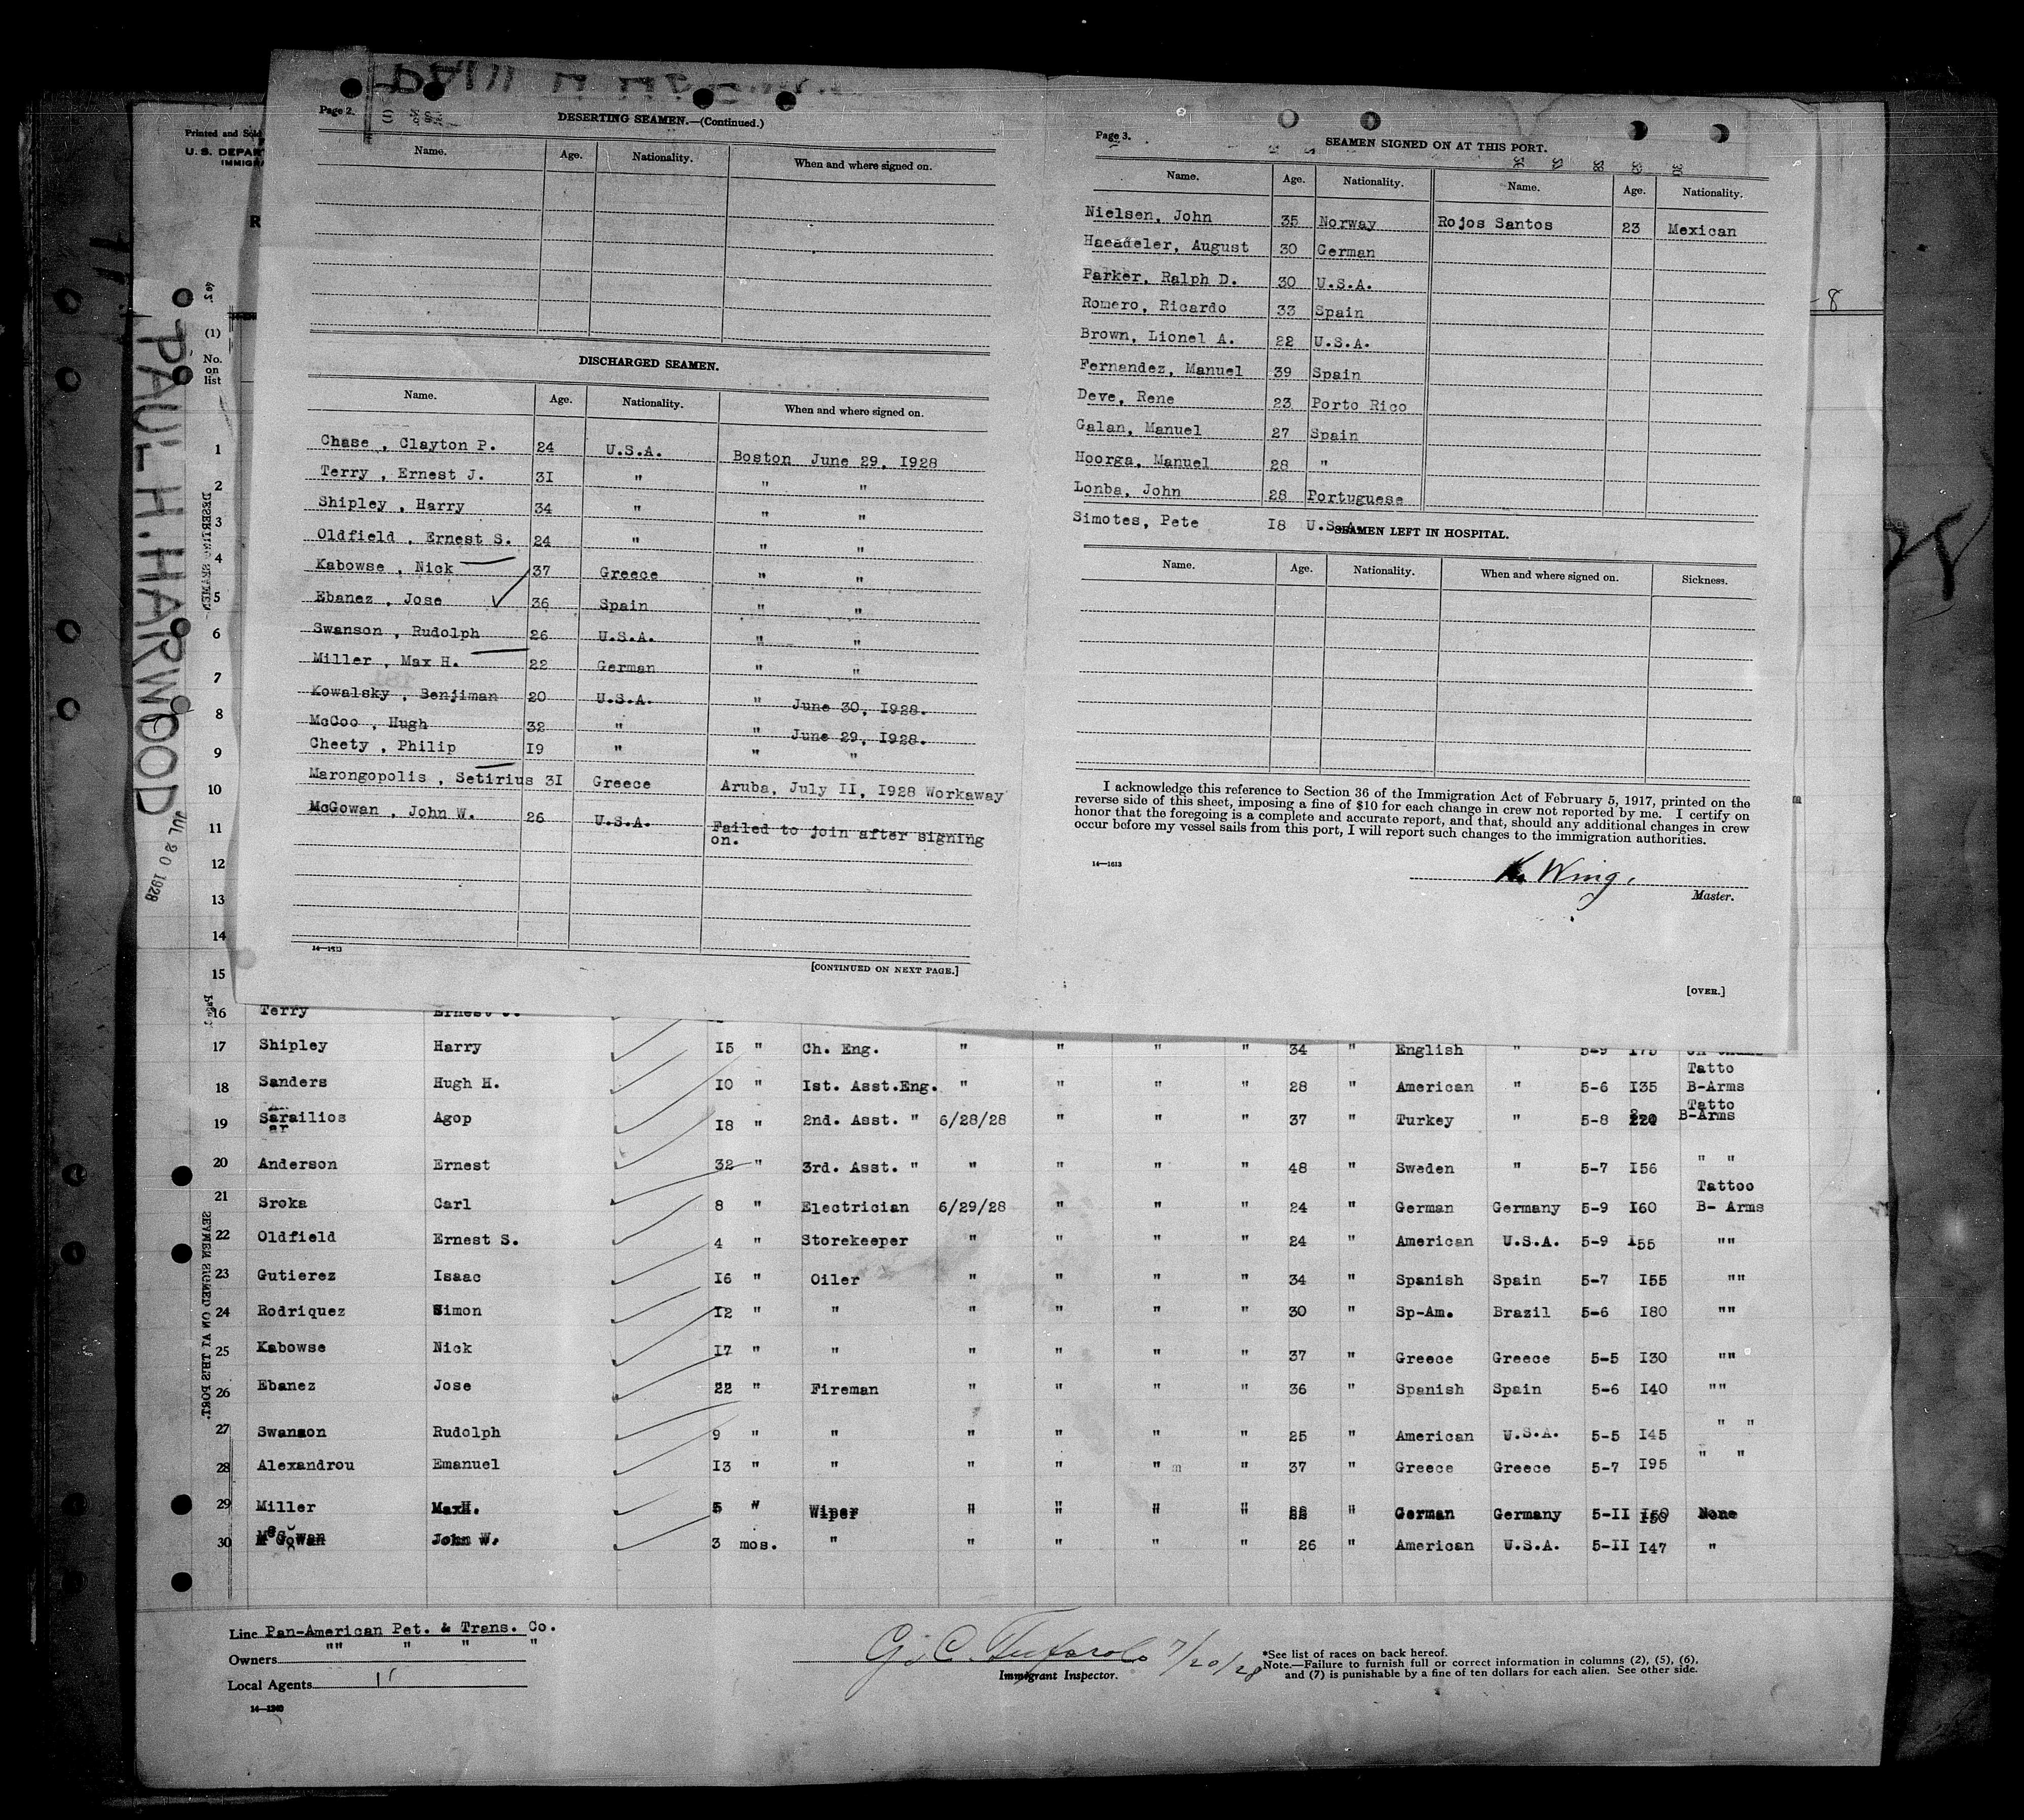 Page 2.
DESERTING SEAMEN.—(Continued.)
Name. Age. Nationality. When and where signed on.
DISCHARGED SEAMEN.
Name. Age. Nationality. When and where signed on.
Chase , Clayton P. 24 U.S.A. Boston June 29, I928
Terry , Ernest J. 3I " " "
Shipley , Harry 34 " " "
Oldfield , Ernest S. 24 " " "
Kabowse , Nick 37 Greece " "
Ebanez , Jose 36 Spain " "
Swanson , Rudolph 26 U.S.A. " "
Miller , Max H. 22 German " "
Kowalsky , Benjiman 20 U.S.A. " June 30, I928.
McCoo , Hugh 32 " " June 29, I928.
Cheety , Philip I9 " " "
Marongopolis , Setirius 3I Greece Aruba, July II, I928 Workaway
McGowan , John W. 26 U.S.A. Failed to join after signing
on.
14—1613
[CONTINUED ON NEXT PAGE.]
Page 3.
SEAMEN SIGNED ON AT THIS PORT.
Name. Age. Nationality. Name. Age. Nationality.
Nielsen, John 35 Norway Rojos Santos 23 Mexican
Haeadeler, August 30 German
Parker, Ralph D. 30 U.S.A.
Romero, Ricardo 33 Spain
Brown, Lionel A. 22 U.S.A.
Fernandez, Manuel 39 Spain
Deve, Rene 23 Porto Rico
Galan, Manuel 27 Spain
Hoorga, Manuel 28 "
Lonba, John 28 Portuguese
Simotes, Pete I8 U.S.A.
SEAMEN LEFT IN HOSPITAL.
Name. Age. Nationality. When and where signed on. Sickness.
I acknowledge this reference to Section 36 of the Immigration Act of February 5, 1917, printed on the
reverse side of this sheet, imposing a fine of $10 for each change in crew not reported by me. I certify on
honor that the foregoing is a complete and accurate report, and that, should any additional changes in crew
occur before my vessel sails from this port, I will report such changes to the immigration authorities.
14—1613
K. Wing.
Master.
[OVER.]
Printed and Sold
U. S. DEPAR
IMMIGRA
R
-8
(1)
No.
on
list
PAUL H. HARWOOD
JUL 20 1928
DESERTING SEAMEN
SEAMEN SIGNED ON AT THIS PORT.
1
2
3
4
5
6
7
8
9
10
11
12
13
14
15
16 Terry Ernest J.
17 Shipley Harry I5 " Ch. Eng. " " " " 34 " English " 5-9 I75
18 Sanders Hugh H. I0 " Ist. Asst.Eng. " " " " 28 " American " 5-6 I35 Tatto B-Arms
19 Sarailios Agop I8 " 2nd. Asst. " 6/28/28 " " " 37 " Turkey " 5-8 220 Tatto B-Arms
20 Anderson Ernest 32 " 3rd. Asst. " " " " " 48 " Sweden " 5-7 I56 " "
21 Sroka Carl 8 " Electrician 6/29/28 " " " 24 " German Germany 5-9 I60 Tattoo B- Arms
22 Oldfield Ernest S. 4 " Storekeeper " " " " 24 " American U.S.A. 5-9 I55 ""
23 Gutierez Isaac I6 " Oiler " " " " 34 " Spanish Spain 5-7 I55 ""
24 Rodriquez Simon I2 " " " " " " 30 " Sp-Am. Brazil 5-6 I80 ""
25 Kabowse Nick I7 " " " " " " 37 " Greece Greece 5-5 I30 ""
26 Ebanez Jose 22 " Fireman " " " " 36 " Spanish Spain 5-6 I40 ""
27 Swanson Rudolph 9 " " " " " " 25 " American U.S.A. 5-5 I45 " "
28 Alexandrou Emanuel I3 " " " " " m " 37 " Greece Greece 5-7 I95 " "
29 Miller MaxH. 5 " Wiper " " " " 22 " German Germany 5-II I50 None
30 McGowan John W. 3 mos. " " " " " 26 " American U.S.A. 5-II I47 "
Line Pan-American Pet. & Trans. Co.
Owners "" " " "
Local Agents
14—1240
7/20/28
Immigrant Inspector.
*See list of races on back hereof.
Note.—Failure to furnish full or correct information in columns (2), (5), (6),
and (7) is punishable by a fine of ten dollars for each alien. See other side.